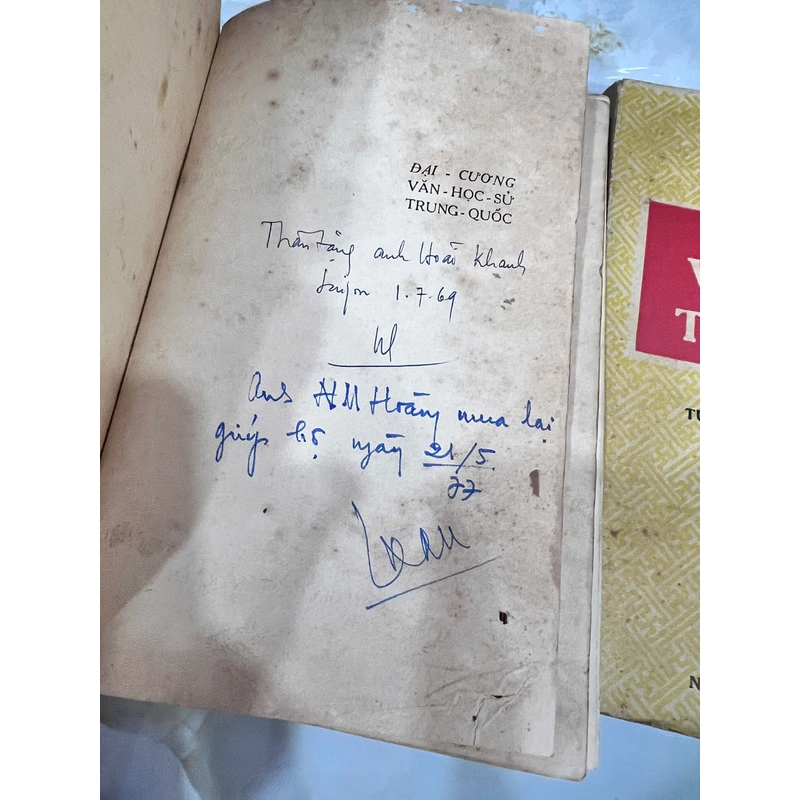 ĐẠI - CƯƠNG
VĂN - HỌC - SỬ
TRUNG - QUỐC
Thân tặng anh Hoài Khanh
Saigon 1.7.69
Anh NM Hoàng mua lại
giúp hộ ngày 21/5.
77
V
T
TU
N